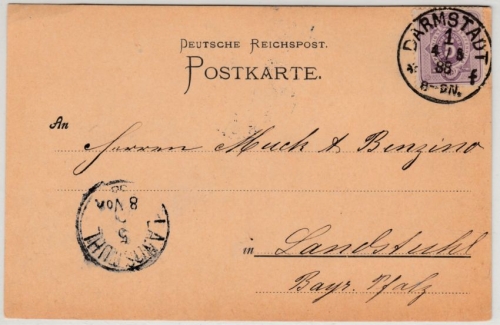 DEUTSCHE REICHSPOST.
POSTKARTE.
DARMSTADT
1
88
8-9N.
f
An
Herren Muck & Benzino
LANDSTUHL
5
8 Vor
in Landstuhl
Bayr. Pfalz